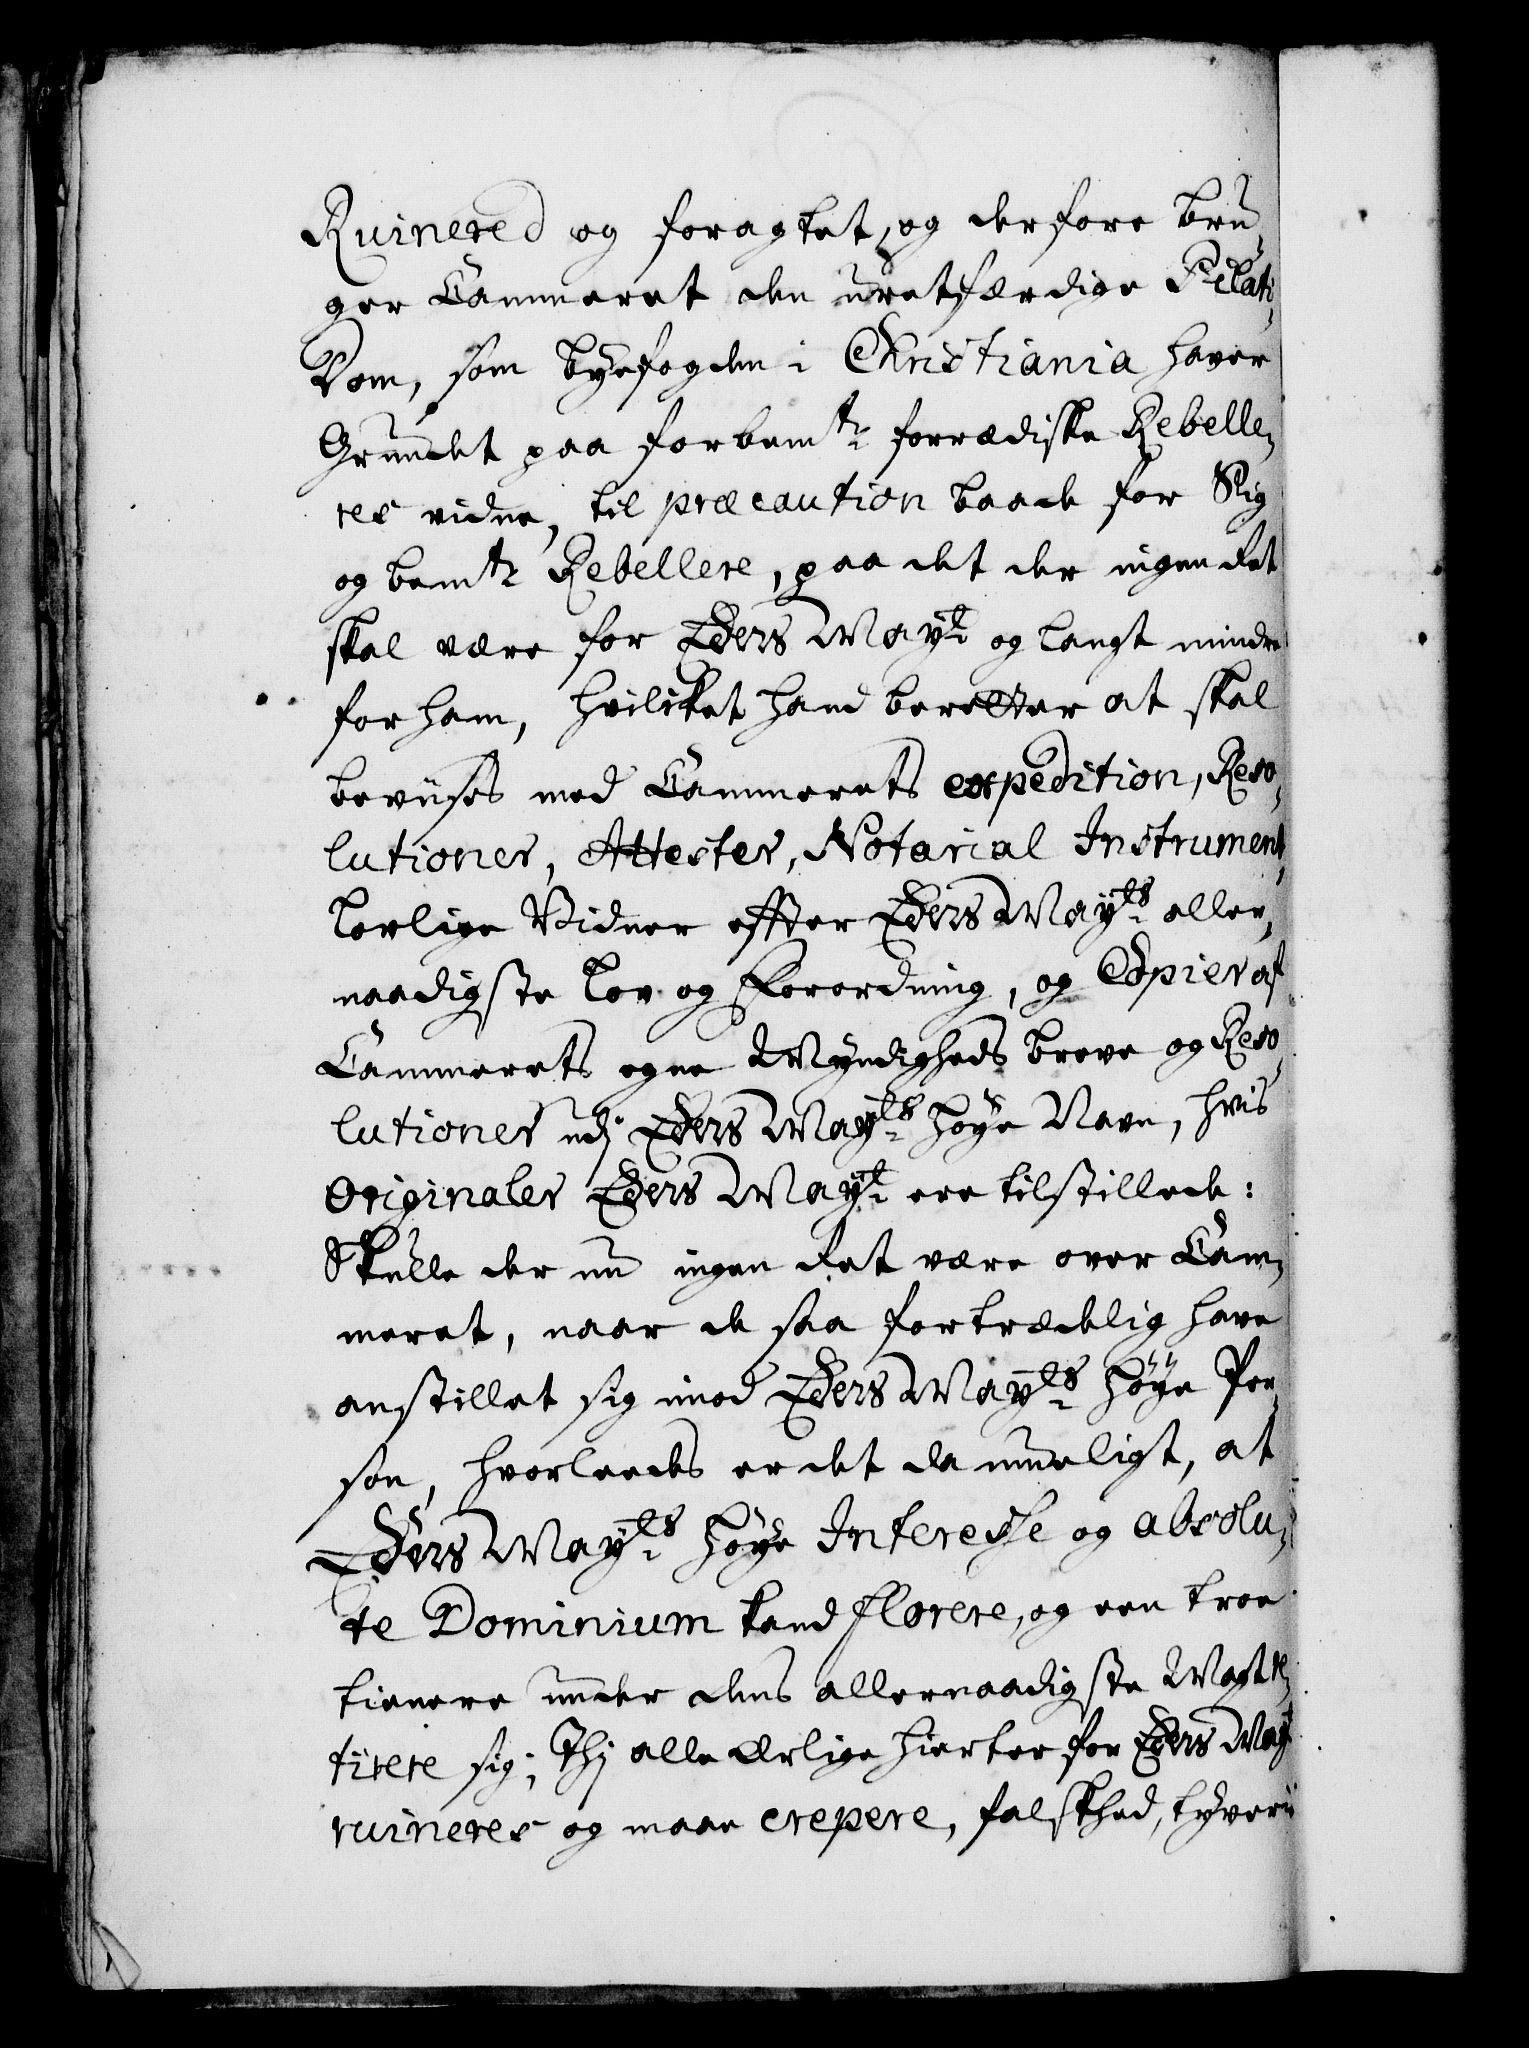 Ruinered og foragtet, og derfore bru-
ger Cammeret den uretfærdige Pilati
Dom, som byefogden i Christiania haver
Grundet paa forbemte forrædiske Rebelle-
res vidne, til præcaution baade for Sig
og bemte Rebellere, paa det der ingen Ret
skal være for Eders Mayt og langt mindre
for ham, hvilcket hand beretter at skal
beviises med Cammerets expedition, Reso-
lutioner, Attester, Notarial Instrument,
lovlige Vidner effter Eders Mayts aller-
naadigste Lov og Forordning, og Copier af
Cammerets egne Myndigheds breve og Reso-
lutioner udj Eders Mayts höye Navn, hvis
Originaler Eders Mayt ere tilstillede:
Skulle der nu ingen Ret være over Cam-
meret, naar de saa fortrædelig have
anstillet sig imod Eders Mayts höye Per-
son, hvorleedes er det da mueligt, at
Eders Mayts höye Interesse og absolu-
te Dominium kand florere, og een troe
tienere under dens allernaadigste Magt re-
tirere sig; Thj alle Ærlige hierter for Eders Mayt
ruineres og maae crepere, falskhed, tyverii